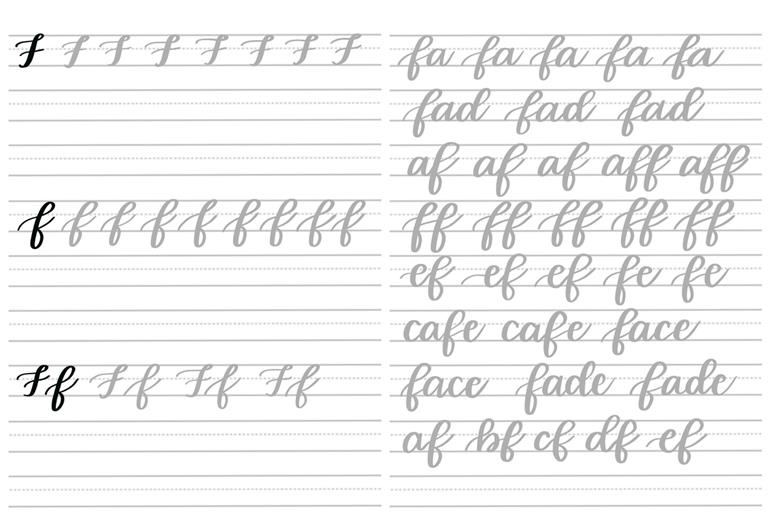 F F F F F F F F
f f f f f f f f f
Ff Ff Ff Ff
fa fa fa fa fa
fad fad fad
af af af aff aff
ff ff ff ff ff
ef ef ef fe fe
cafe cafe face
face fade fade
af bf cf df ef